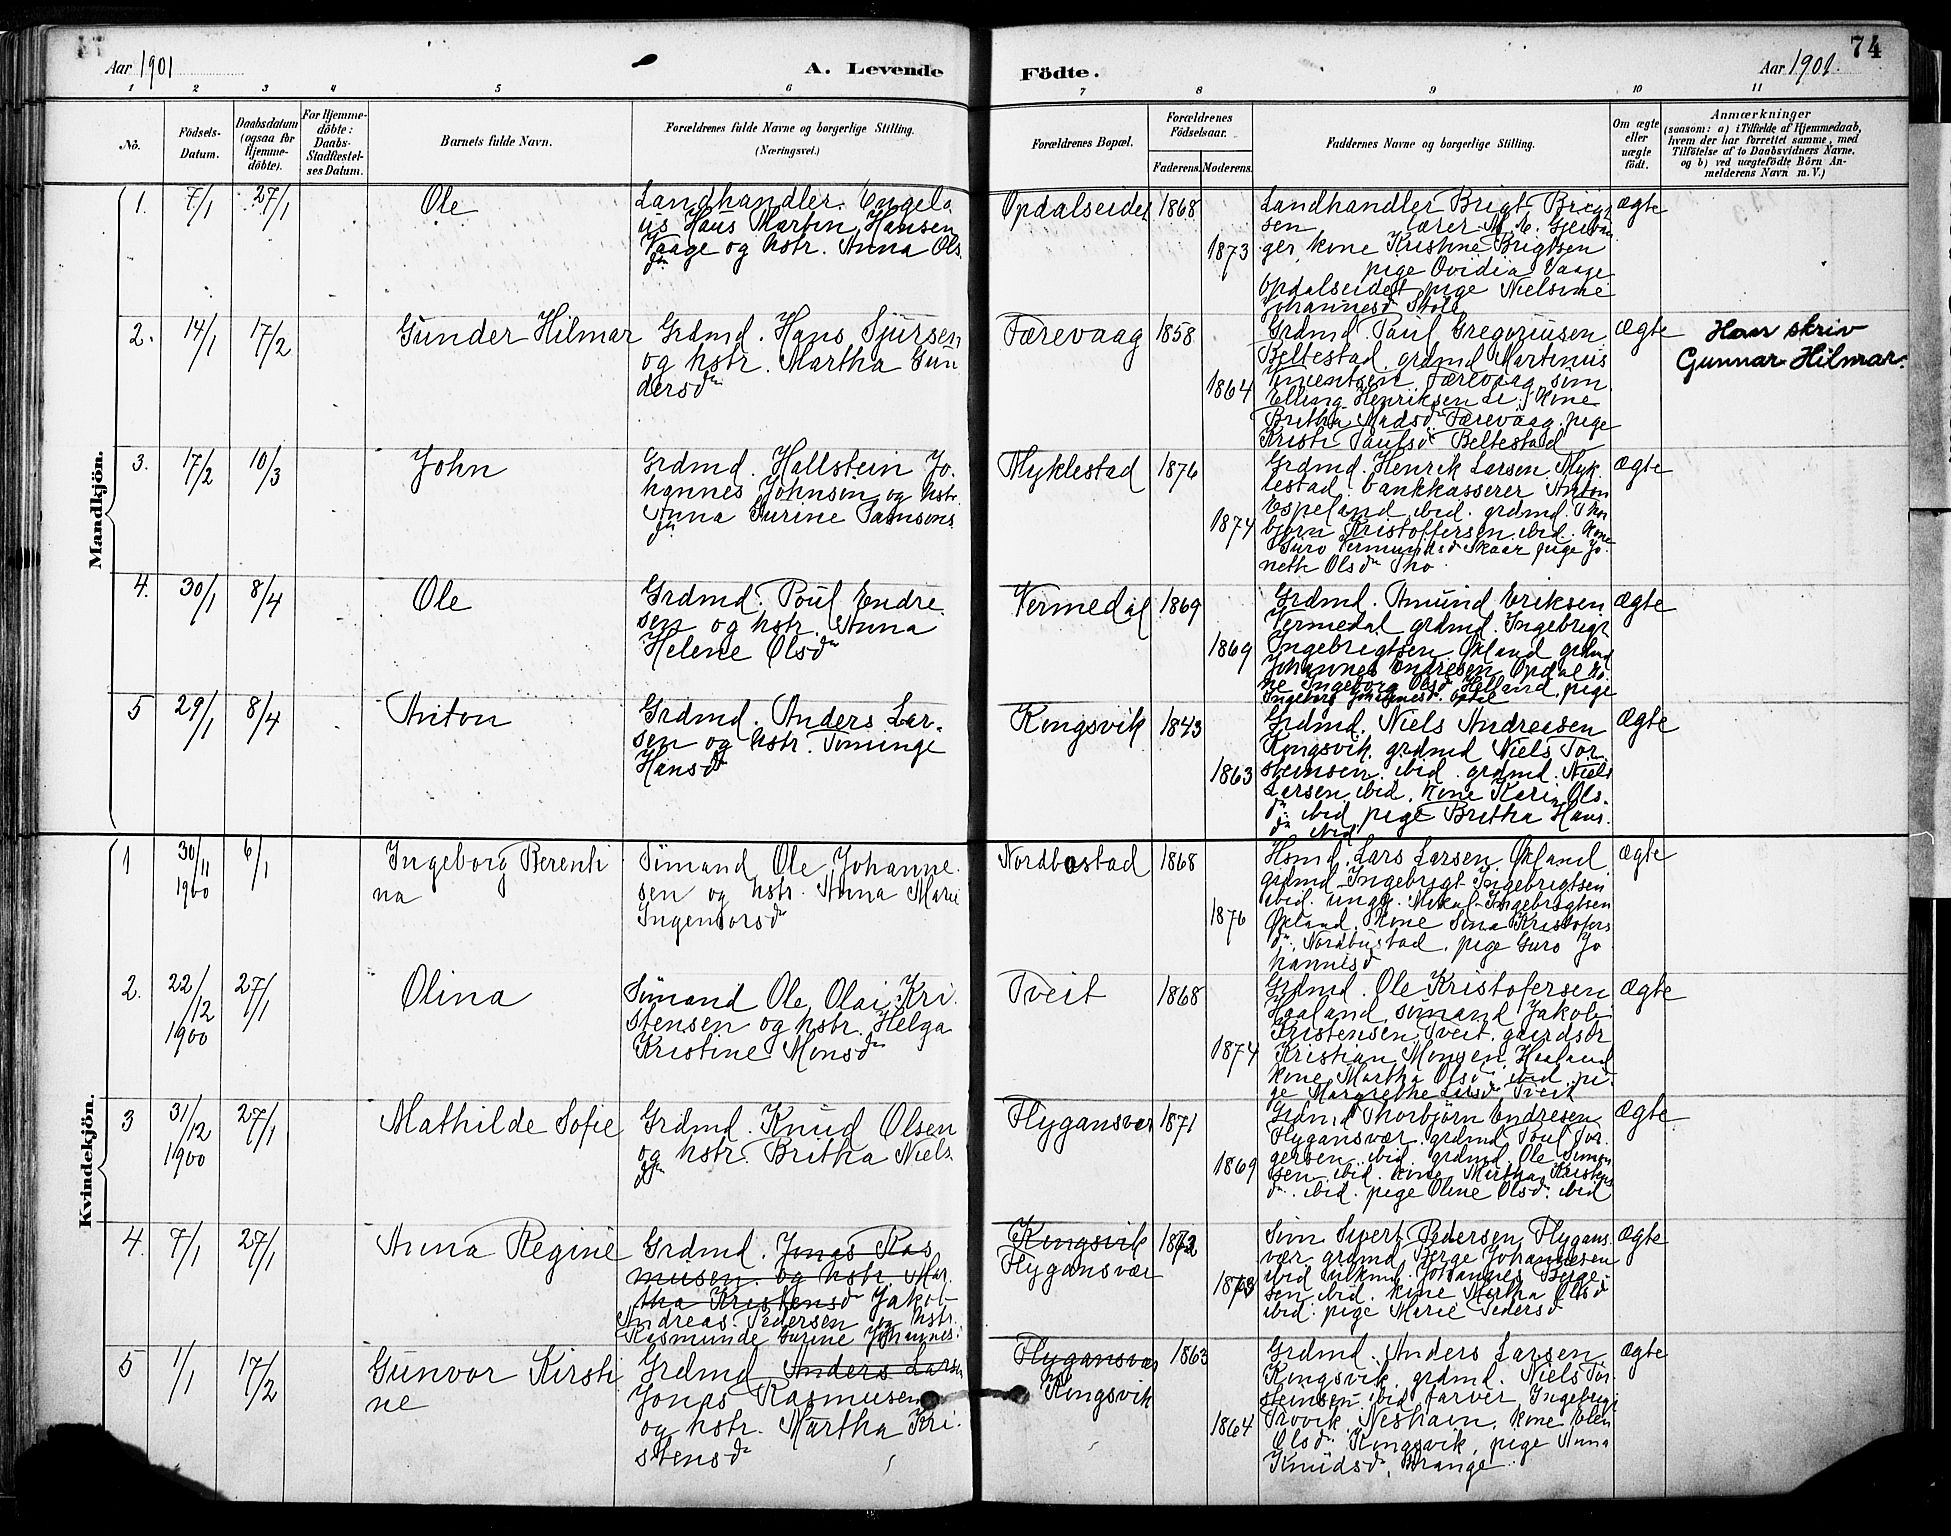 74
Aar 1901
A. Levende Födte.
Aar 1901.
1 2 3 4 5 6 7 8 9 10 11
No.
Födsels-
Datum.
Daabsdatum
(ogsaa for
Hjemme-
döbte).
For Hjemme-
döbte:
Daabs-
Stadfæstel-
ses Datum.
Barnets fulde Navn.
Forældrenes fulde Navne og borgerlige Stilling.
(Næringsvei.)
Forældrenes Bopæl.
Forældrenes
Födselsaar.
Faderens. Moderens.
Faddernes Navne og borgerlige Stilling.
Om ægte
eller
uægte
födt.
Anmærkninger
(saasom: a) i Tilfælde af Hjemmedaab,
hvem der har forrettet samme, med
Tilföielse af to Daabsvidners Navne,
og b) ved uægtefödte Börn An-
melderens Navn m. V.)
Mandkjön.
1. 7/1 27/1 Ole
Landhandler Engela
us Hans Martin Hansen
Vaage og hstr. Anna Ols
dr
Opdalseidet 1868 1873
Landhandler Brigt Brigt
sen lærer
ger, kone Kristine Brigtsen
pige Ovidia Vaage
Opdalseidet pige Nielsine
Johannesdr
Ægte
2. 14/1 17/2 Gunder Hilmar
Grdmd. Hans Sjursen
og hstr. Martha Gun
dersdr
Færevaag 1858 1864
Grdmd Paul Gregoriusen
Beltestad, grdmd Martinus
Vincentsen Færevaag,
Elling Henriksen kone
Britha Madsdr Færevaag, pige
Kristi Paulsdr Beltestad
Ægte
Han skriv
Gunnar Hilmar.
3. 17/2 10/3 John
Grdmd. Hallstein Jo.
hannes Johnsen og hstr
Anna Surine Samsons
dr
Myklestad 1876 1874
Grdmd. Henrik Larsen Myk
lestad. bankkasserer Anton
Espeland ibid. grdmd. Thor
bjørn Kristoffersen ibid. kone
Guro Vermundsd Skaar pige Jo.
nette Olsdr Tho
Ægte
4. 30/1 8/4 Ole
Grdmd. Poul Endre
sen og hstr. Anna
Helene Olsdr
Vermedal 1869 1869
Grdmd. Amund Eriksen
Vermedal grdmd. Ingebrigt
Ingebrigtsen Økland grdmd
Johannes Endresen Opdal ko.
ne Ingeborg Olsd. Helland, pige
Ingeborg Johannesd. Opdal
Ægte
5 29/1 8/4 Anton
Grdmd. Anders Lar.
sen og hstr. Tominge
Hansdr
Kongsvik 1843 1863
Grdmd. Niels Andreasen
Kongsvik. grdmd Niels Tor.
steinsen ibid. grdmd. Niels
Larsen ibid, kone Kari Ols.
dr. ibid pige Britha Hans.
dr ibid
Ægte
Kvindekjön.
1 30/11 1900 6/1 Ingeborg Berenti
na
Sömand Ole Johanne.
sen og hstr. Anna Marie
Ingemorsdr
Nordbostad 1868 1876
Hsmd. Lars Larsen Økland
grdmd Ingebrigt Ingebrigtsen
ibid. ungk. Mikal Ingebrigtsen
Økland, kone Sina Kristofers
dr. Nordbustad, pige Guro Jo
hannesd
Ægte
2. 22/12 1900 27/1 Olina
Sömand Ole Olai Kri
stensen og hstr. Helga
Kristine Monsdr
Tveit 1868 1874
Grdmd. Ole Kristofersen
Haaland, sömand Jakob
Kristensen Tveit. gaardsbr
Kristian Monsen Haaland
kone Martha Olsd. ibid, pi.
ge Margrethe Larsd. Tveit
Ægte
3 31/12 1900 27/1 Mathilde Sofie
Grdmd. Knud Olsen
og hstr. Britha Niels
dr
Flygansvær 1871 1869
Grdmd Thorbjørn Endresen
Flygansvær. grdmd Poul Tor.
gersen ibid, grdmd. Ole Simon
sen ibid. kone Martha Kristens
dr. ibid. pige Oline Olsd. ibid
Ægte
4. 7/1 27/1 Anna Regine
Grdmd. Jonas Ras
musen og hstr. Mar.
tha Kristensd Jakob
Andreas Pedersen og hstr.
Rasmunde Gurine Johannes.
Kongsvik
Flygansvær 1872 1873
Sivert Pedersen Flygans.
vær grdmd. Berge Johannesen
ibid Johannes Berge.
sen ibid. kone Martha Olsd
ibid. pige Marie Pedersd
Ægte
5 1/1 17/2 Gunvor Kirsti
ne
Grdmd Anders Larsen
Jonas Rasmusen
og hstr. Martha Kri.
stensdr
Flygansvær
Kongsvik 1863 1864
Grdmd. Anders Larsen
Kongsvik, grdmd. Niels Tor
steinsen ibid farver Ingebrigt
Trovik Neshavn, kone Elen
Olsdr. Kongsvik, pige Anna
Knudsd, Drange
Ægte